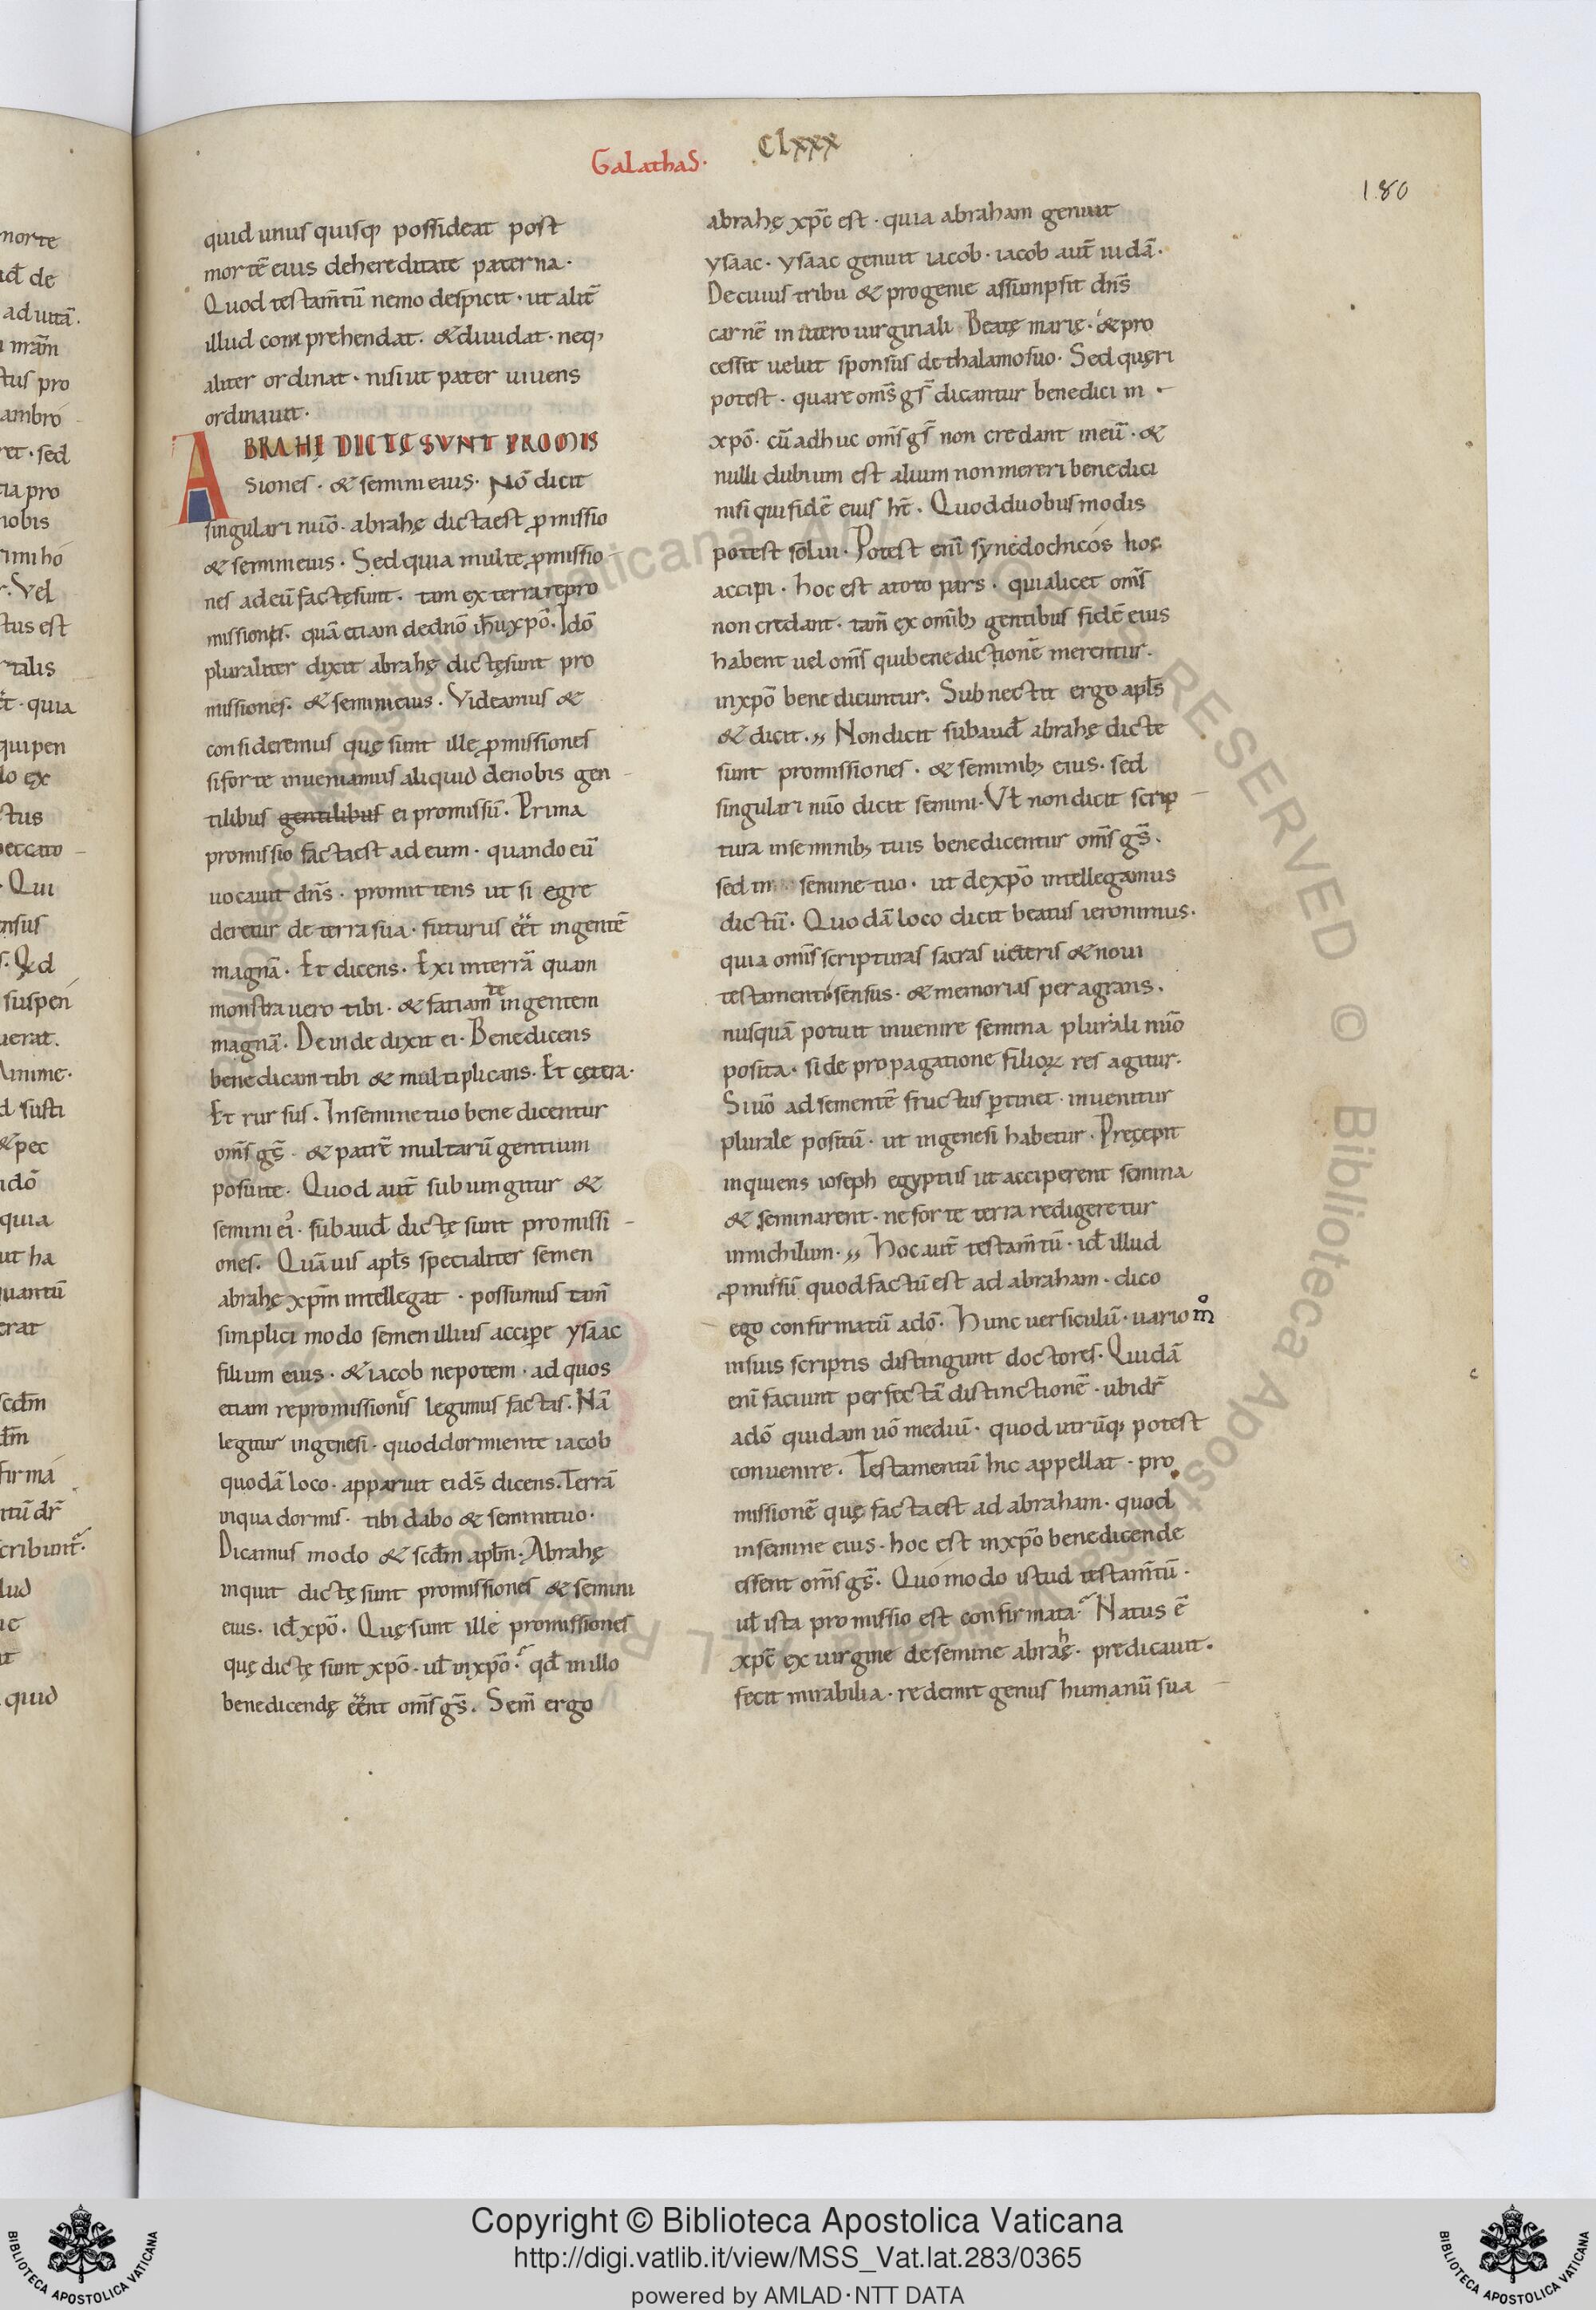 Galathas.
Clxxx
180
quid unus quisqꝫ possideat post
mortē eius dehereditate paterna.
Quod testam̄tū nemo despicit · ut alit̄
illud com prehendat · & diuidat · neqꝫ
aliter ordinat · nisi ut pater uiuens
ordinauit.
ABRAHĘ DICTĘ SVNT PROMIS
siones · & semini eius · Nō dicit
singulari nūo · abrahę dicta est ꝓmissio
& semini eius · Sed quia multe ꝓmissio
nes ad eū factę sunt · tam ex terra repro
missiones · quā etiam de dn̄o ih̄u xp̄o · Idō
pluraliter dixit abrahę dictę sunt pro
missiones · & semini eius · Videamus &
consideremus quę sunt ille ꝓmissiones
si forte inueniamus aliquid de nobis gen
tilibus gentilibus ei promissū · Prima
promissio facta est ad eum · quando eū
uocauit dn̄s · promittens ut si egre
deretur de terra sua · futurus eēt in gentē
magnā · Et dicens · Exi in terrā quam
monstrauero tibi · & fatiam te in gentem
magnā · Deinde dixit ei · Benedicens
benedicam tibi & multiplicans · Et cętera ·
Et rursus · In semine tuo benedicentur
om̄s gs̄ · & patrē multarū gentium
posui te · Quod aut̄ subiungitur &
semini ei᾽ · subaud̄ dictę sunt promissi
ones · Quāuis apl̄s specialiter semen
abrahę xp̄m intellegat · possumus tam̄
simplici modo semen illius accipe ysaac
filium eius · & iacob nepotem · ad quos
etiam repromissionis legimus factas · Nā
legitur in genesi · quod dormiente iacob
quodā loco · apparuit ei ds̄ dicens · Terrā
in qua dormis · tibi dabo & semini tuo ·
Dicamus modo & scd̄m apl̄m · Abrahę
inquit dictę sunt promissiones & semini
eius · id̄ xp̄o · Quę sunt ille promissiones
quę dictę sunt xp̄o · ul̄ in xp̄o · qd̄ in illo
benedicendę eēnt om̄s gs̄ · Sem̄ ergo
abrahę xp̄c est · quia abraham genuit
ysaac · ysaac genuit iacob · iacob aut̄ iudā ·
De cuius tribu & progenie assumpsit dn̄s
carnē in utero uirginali Beatę marię · & pro
cessit uelut sponsus de thalamo suo · Sed quęri
potest · quare om̄s gs̄ dicantur benedici in ·
xp̄o · cū adhuc om̄s gs̄ non credant in eū · &
nulli dubium est alium non mereri benedici
nisi qui fidē eius ht̄ · Quod duobus modis
potest solui · Potest enī synedochicós hoc
accipi · hoc est a toto pars · quia licet om̄s
non credant · tam̄ ex omībꝫ gentibus fidē eius
habent uel om̄s qui benedictionē merentur ·
in xp̄o benedicuntur · Subnectit ergo apl̄s
& dicit · Non dicit subaud̄ abrahę dicte
sunt promissiones · & seminibꝫ eius · sed
singulari nūo dicit semini · Vł non dicit scrip
tura in seminibꝫ tuis benedicentur om̄s gs̄ ·
sed in semine tuo · ut de xp̄o intellegamus
dictū · Quodā loco dicit beatus ieronimus ·
quia om̄s scripturas sacras ueteris & noui
testamenti sensus · & memorias peragrans ·
nusquā potuit inuenire semina plurali nūo
posita · si de propagatione filioꝝ res agitur ·
Si uō ad sementē fructus ꝑtinet · inuenitur
plurale positū · ut in genesi habetur · Pręcepit
inquiens ioseph egyptiis ut acciperent semina
& seminarent · ne forte terra redigeretur
in nichilum · Hoc aut̄ testam̄tū · id̄ illud
ꝓmissū quod factū est ad abraham · dico
ego confirmatū a dō · Hunc uersiculū · uario m̊
in suis scriptis distingunt doctores · Quidā
enī faciunt perfectā distinctionē · ubi dr̄
a dō quidam uō mediū · quod utrūqꝫ potest
conuenire · Testamentū hic appellat · pro
missionē quę facta est ad abraham · quod
in semine eius · hoc est in xp̄o benedicende
essent om̄s gs̄ · Quomodo istud testam̄tū ·
ul̄ ista promissio est confirmata · Natus ē
xp̄c ex uirgine de semine abrahę · predicauit ·
fecit mirabilia · redemit genus humanū sua
Copyright © Biblioteca Apostolica Vaticana
http://digi.vatlib.it/view/MSS_Vat.lat.283/0365
powered by AMLAD·NTT DATA
BIBLIOTECA APOSTOLICA VATICANA
BIBLIOTECA APOSTOLICA VATICANA